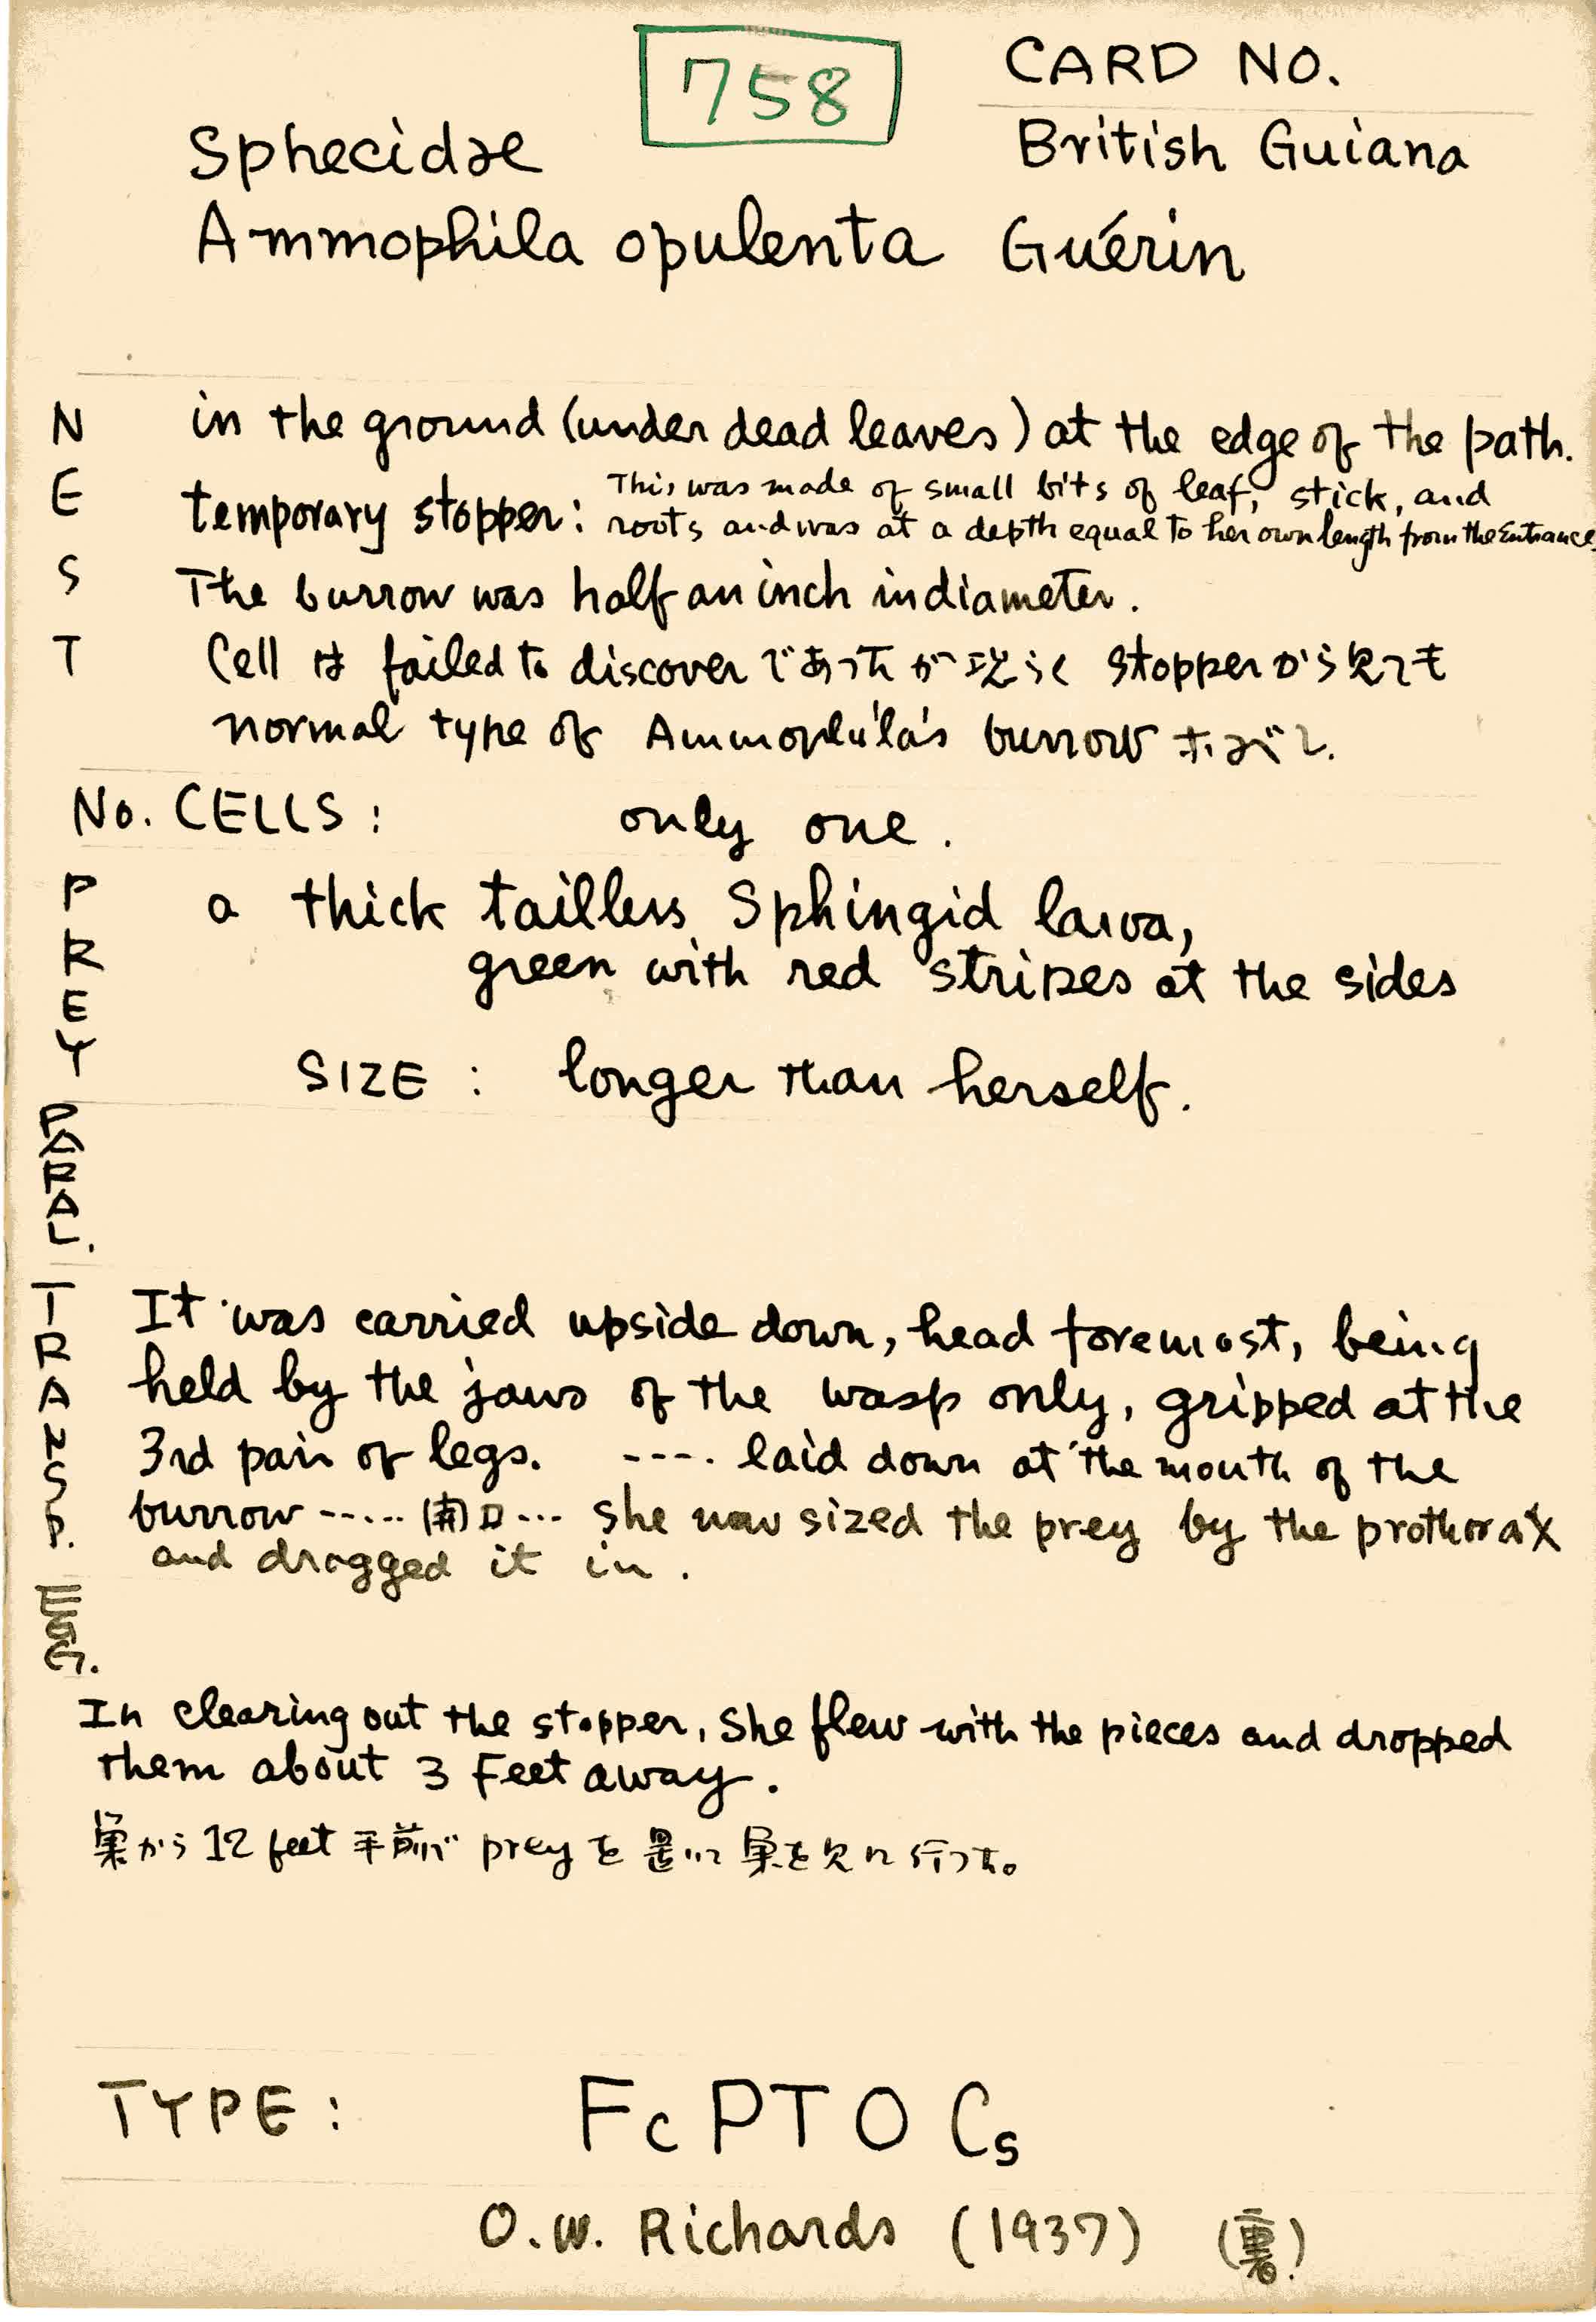 758
CARD NO.
Sphecidae
British Guiana
Ammophila opulenta Guérin
NEST
in the ground (under dead leaves) at the edge of the path.
temporary stopper: This was made of small bits of leaf, stick, and
roots and was at a depth equal to her own length from the Entrance.
The burrow was half an inch in diameter.
Cell は failed to discover であったが 恐らく stopper から見ても
normal type of Ammophila's burrow
No. CELLS: only one.
PREY
a thick tailless Sphingid larva,
green with red stripes at the sides
SIZE : longer than herself.
PARAL.
TRANSP.
It was carried upside down, head foremost, being
held by the jaws of the wasp only, gripped at the
3rd pair of legs. ---- laid down at the mouth of the
burrow ----- (前)口... she now sized the prey by the prothorax
and dragged it in.
In clearing out the stopper, She flew with the pieces and dropped
them about 3 Feet away.
巣から 12 feet 手前で prey を 置いて 巣を見に行った。
TYPE: Fc PTO Cs
O.W. Richards (1937) (裏!)